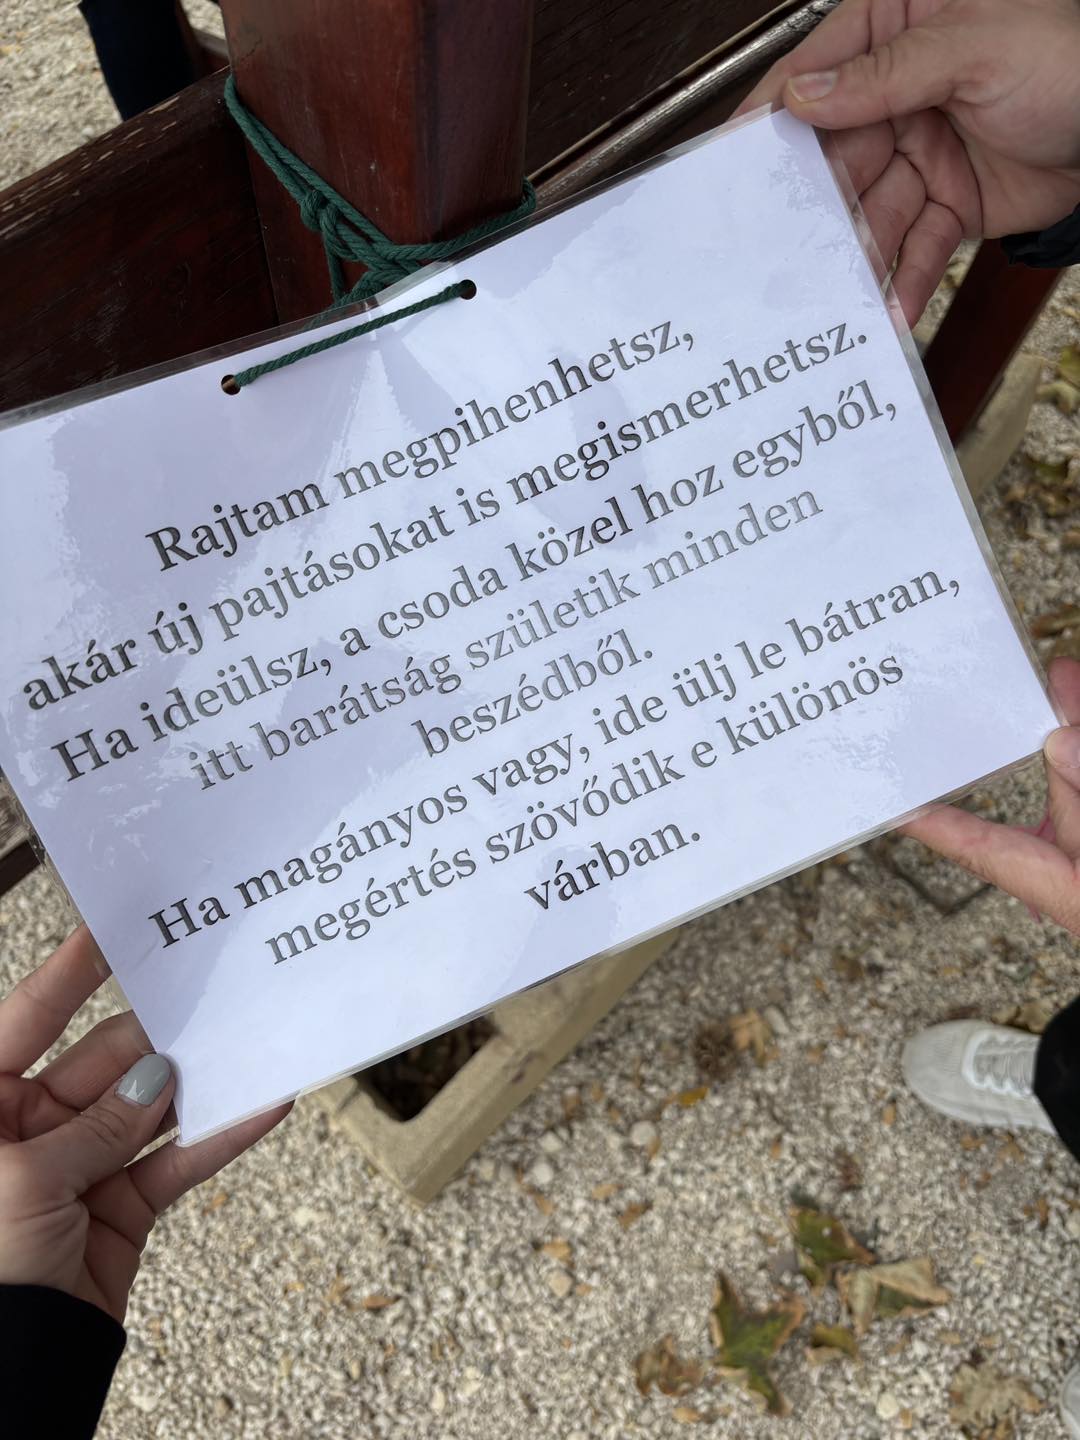 Rajtam megpihenhetsz,
akár új pajtásokat is megismerhetsz.
Ha ideülsz, a csoda közel hoz egyből,
itt barátság születik minden
beszédből.
Ha magányos vagy, ide ülj le bátran,
megértés szövődik e különös
várban.